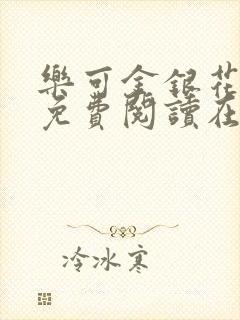 樂可金銀花
免費閱讀在
冷冰寒